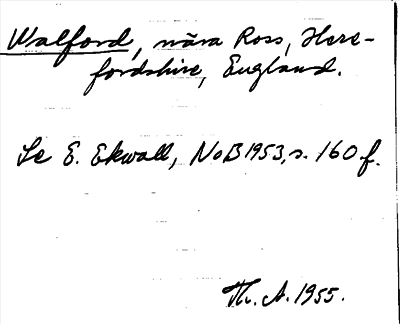 Walford, nära Ross, Here-
fordshire, England.
Se E. Ekwall, NoB 1953, s. 160 f.
Th. A. 1955.